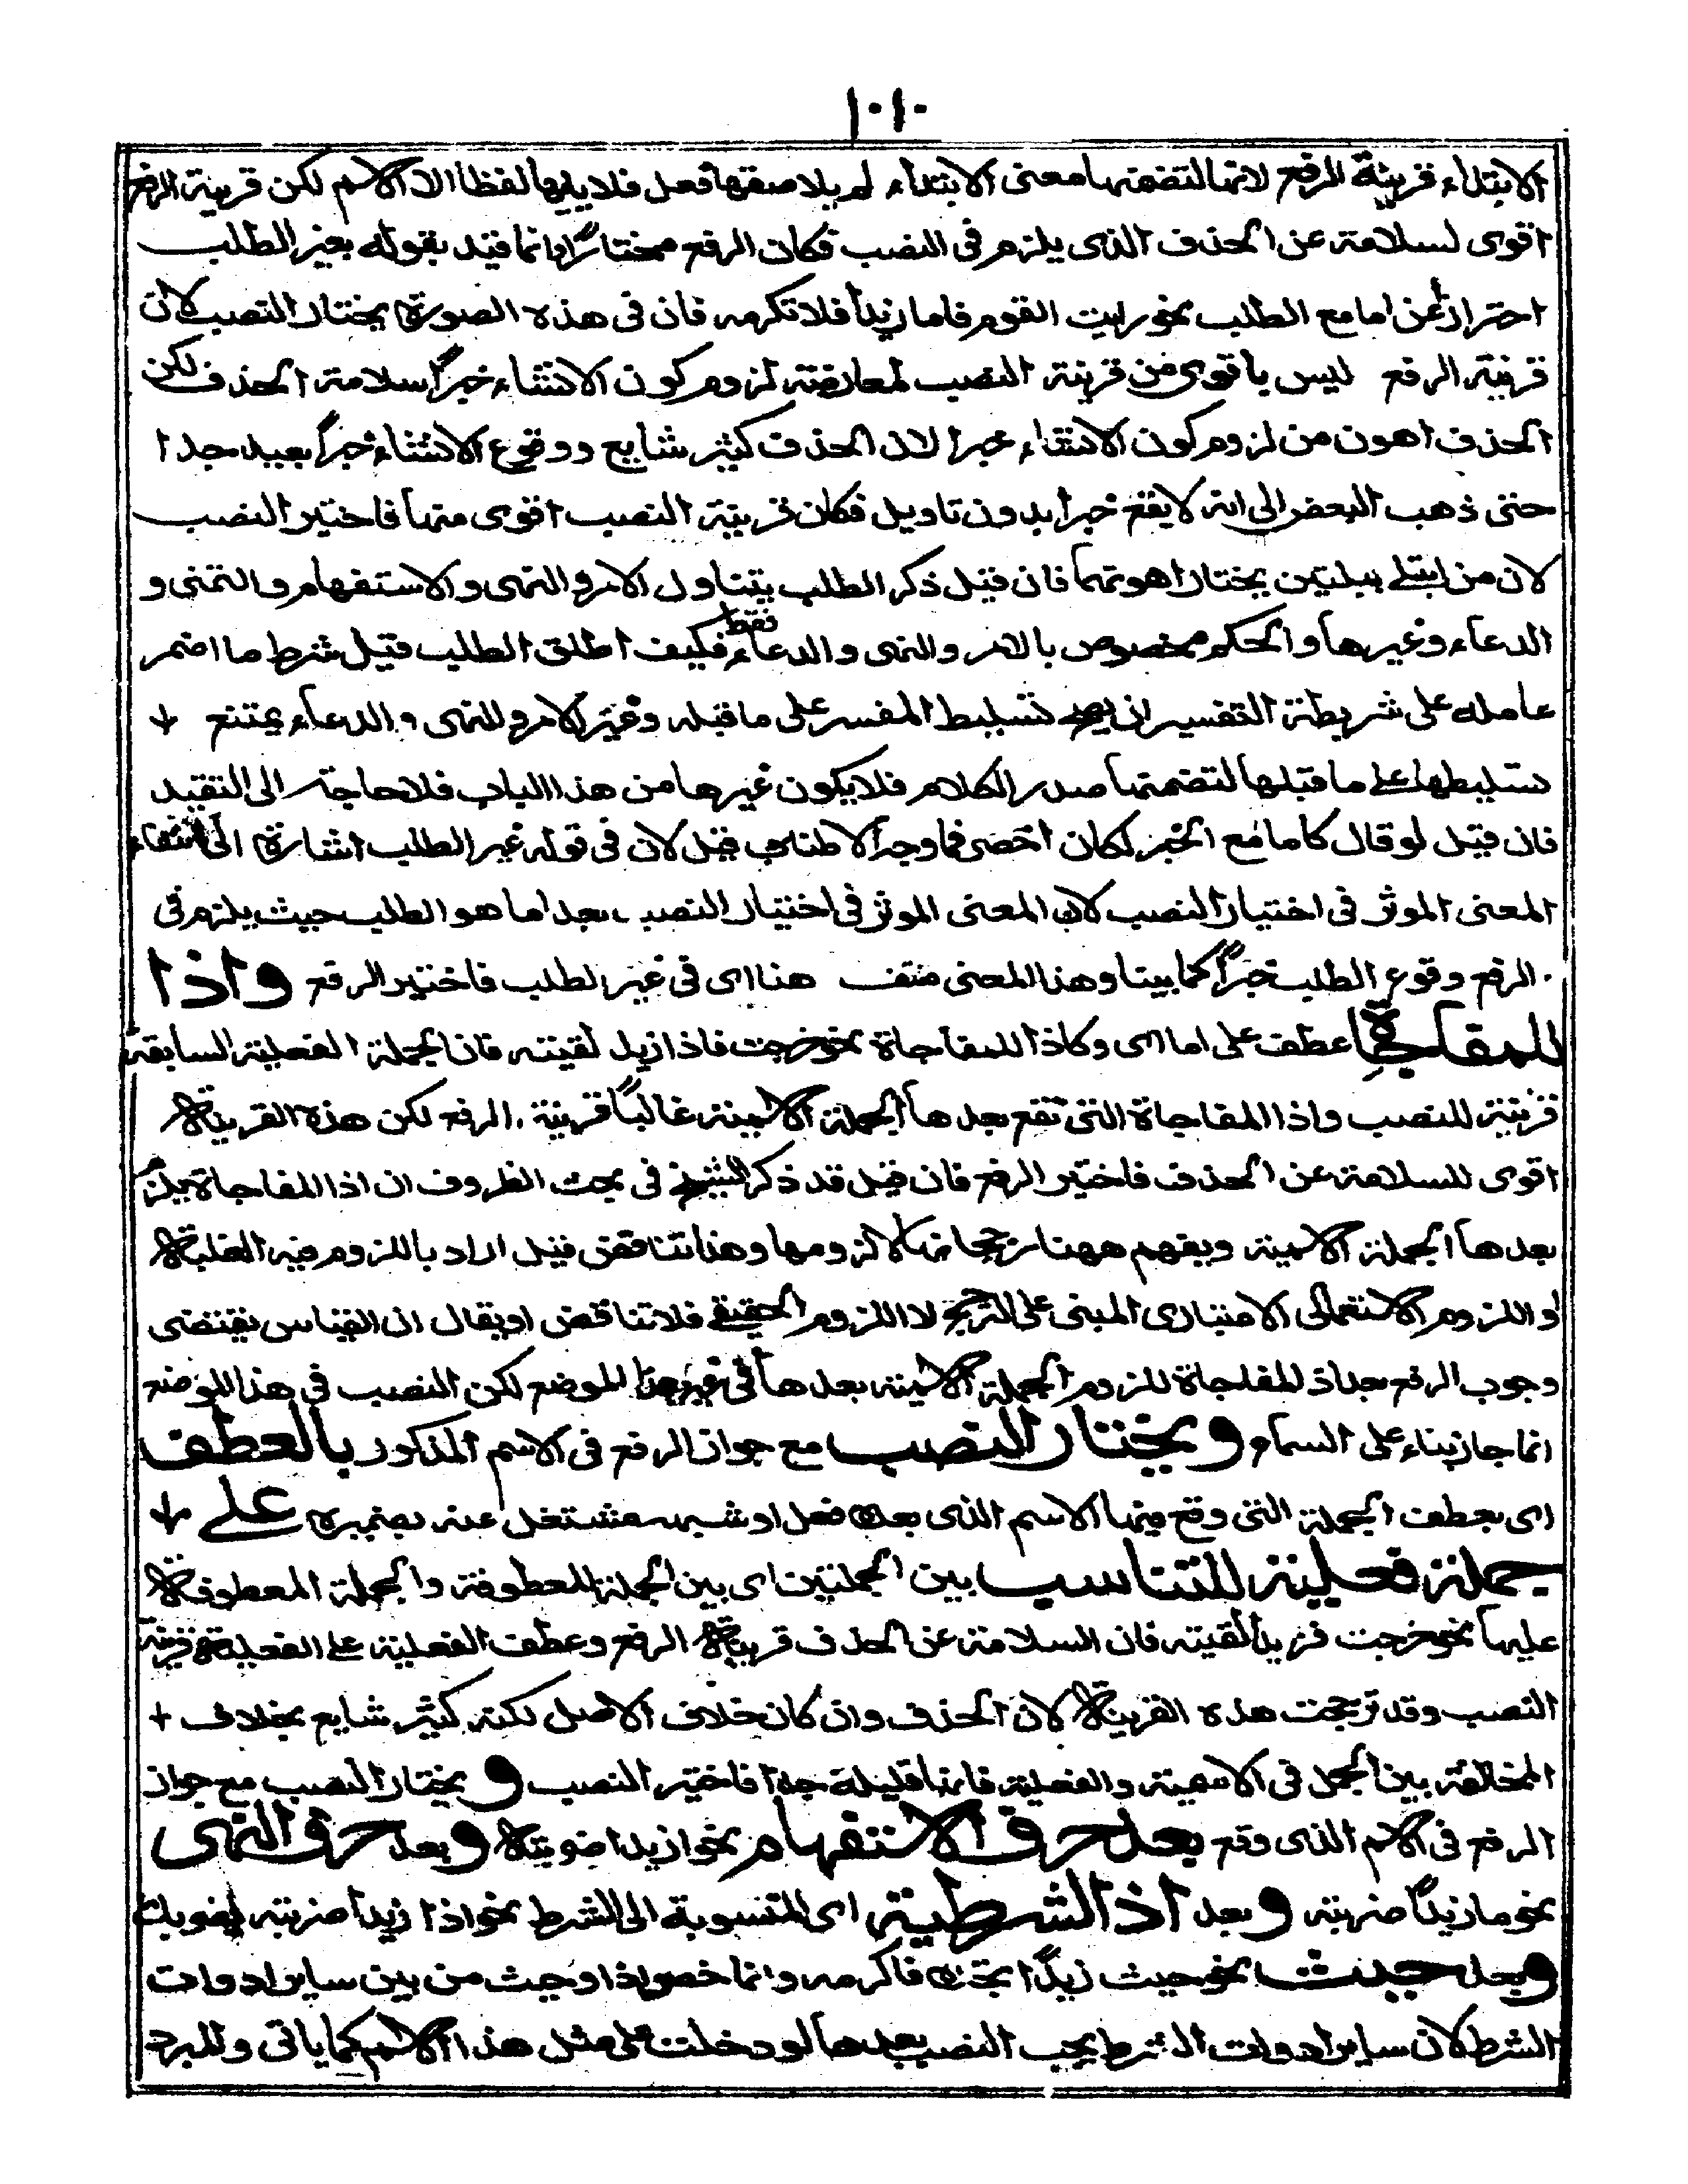 ١٠١٠
الابتداء قرينة الرفع لانها لتضمنها معنى الابتداء لم يلاصقها فعل فلا يليها لفظا الا الاسم لكن قرينة الرفع
اقوى لسلامته عن الحذف الذى يلزم فى النصب فكان الرفع مختارًا وانما قيد بقوله بغير الطلب
احترازًا عن اما مع الطلب نحو رايت القوم فاما زيدًا فلا تكرمه فان فى هذه الصورة يختار النصب لان
قرينة الرفع ليس باقوى من قرينة النصب لمعارضة لزوم كون الانشاء خبرًا سلامة الحذف لكن
الحذف اهون من لزوم كون الانشاء خبرا لان الحذف كثير شايع ووقوع الانشاء خبرًا بعيد جدا
حتى ذهب البعض الى انه لا يقع خبرًا بدون تاويل فكان قرينة النصب اقوى منها فاختير النصب
لان من ابتلى ببليتين يختار اهونهما فان قيل ذكر الطلب يتناول الامر والنهى والاستفهام والتمنى و
الدعاء وغيرها والحكم مخصوص بالامر والنهى والدعاء فقط فكيف اطلق الطلب قيل شرط ما اضمر
عامله على شريطة التفسير ان يصح تسليط المفسر على ما قبله وغير الامر والنهى والدعاء يمتنع
تسليطها على ما قبلها لتضمنها صدر الكلام فلا يكون غيرها من هذا الباب فلا حاجة الى التقييد
فان قيل لو قال كاما مع الخبر لكان اخصر فما وجه الاطناب قيل لان فى قوله غير الطلب اشارة الى انتفاء
المعنى الموثر فى اختيار النصب لان المعنى الموثر فى اختيار النصب بعد اما هو الطلب حيث يلزم فى
الرفع وقوع الطلب خبرًا كما بينا وهذا المعنى منتف هنا اى فى غير الطلب فاختير الرفع واذا
للمفاجاة عطف على اما اى وكاذا للمفاجاة نحو خرجت فاذا زيد لقيته فان الجملة الفعلية السابقة
قرينة للنصب واذا المفاجاة التى تقع بعدها الجملة الاسمية غالبًا قرينة الرفع لكن هذه القرينة
اقوى للسلامة عن الحذف فاختير الرفع فان قيل قد ذكر الشيخ فى بحث الظروف ان اذا المفاجاة يلزم
بعدها الجملة الاسمية ويفهم ههنا لا لزومها وهذا تناقض قيل اراد باللزوم فيه الغلبة
او اللزوم الاستعمالى الاختيارى المبنى على الترجيح لا اللزوم الحقيقى فلا تناقض او يقال ان القياس يقتضى
وجوب الرفع بعد اذ المفاجاة للزوم الجملة الاسمية بعدها فى غير هذا الموضع لكن النصب فى هذا الموضع
انما جاز بناء على السماع ويختار النصب مع جواز الرفع فى الاسم المذكور بالعطف
اى بعطف الجملة التى وقع فيها الاسم الذى بعده فعل او شبهه مشتغل عنه بضميره على
جملة فعلية للتناسب بين الجملتين اى بين الجملة المعطوفة والجملة المعطوفة
عليها نحو خرجت فزيدًا لقيته فان السلامة عن الحذف قرينة الرفع وعطف الفعلية على الفعلية قرينة
النصب وقد ترجحت هذه القرينة لان الحذف وان كان خلاف الاصل لكنه كثير شايع بخلاف
المخالفة بين الجمل فى الاسمية والفعلية فانها قليلة جدا فاختير النصب و يختار النصب مع جواز
الرفع فى الاسم الذى وقع بعد حرف الاستفهام نحو ازيدا ضربته وبعد حرف النهى
نحو ما زيدًا ضربته وبعد اذا الشرطية اى المنسوبة الى الشرط نحو اذا زيدا ضربته اضربك
وبعد حيث نحو حيث زيدًا تجده فاكرمه وانما خص اذا وحيث من بين ساير ادوات
الشرط لان ساير ادوات الشرط يجب النصب بعدها لو دخلت على مثل هذا الاسم كما ياتى وللبرد